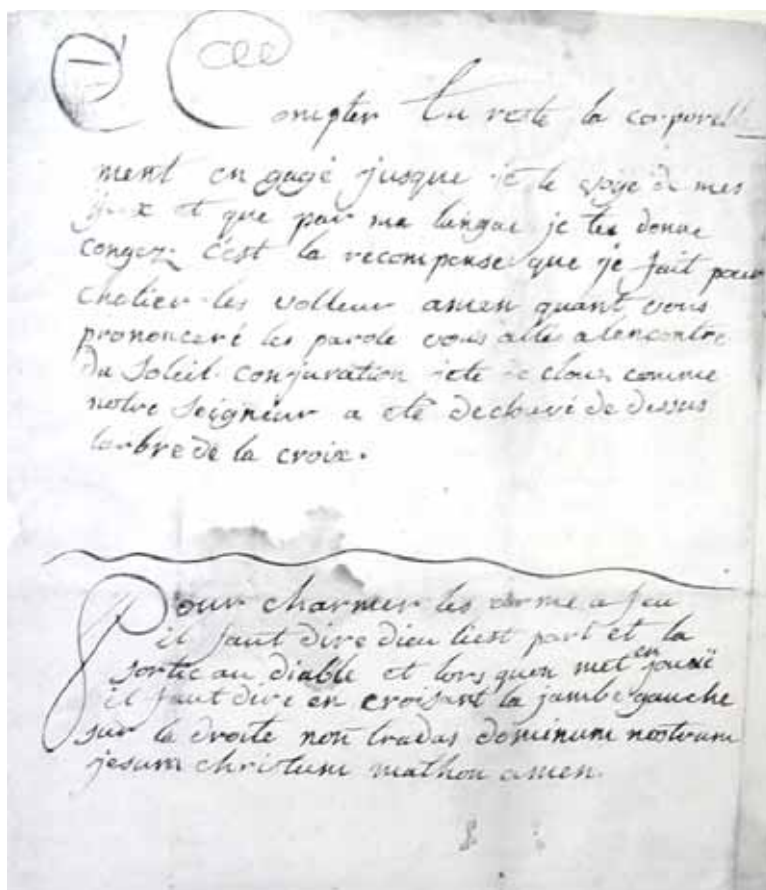 Compter tu reste la corporell
ment en gagé jusque je te voye de mes
yeux et que par ma langue je tes donne
congez c'est la recompense que je fait pour
chatier les volleur amen quant vous
prononceré les parole vous alles alencontre
du Soleil conjuration jete clous comme
notre Seigneur a eté declavé de dessus
larbre de la croix.
Pour charmer les arme a feu
il faut dire dieu liest part et la
sortie au diable et lors quen met en jouë
il faut dire en croisant la jambe gauche
sur la droite non tradas dominum nostrum
jesum christum mathon amen.